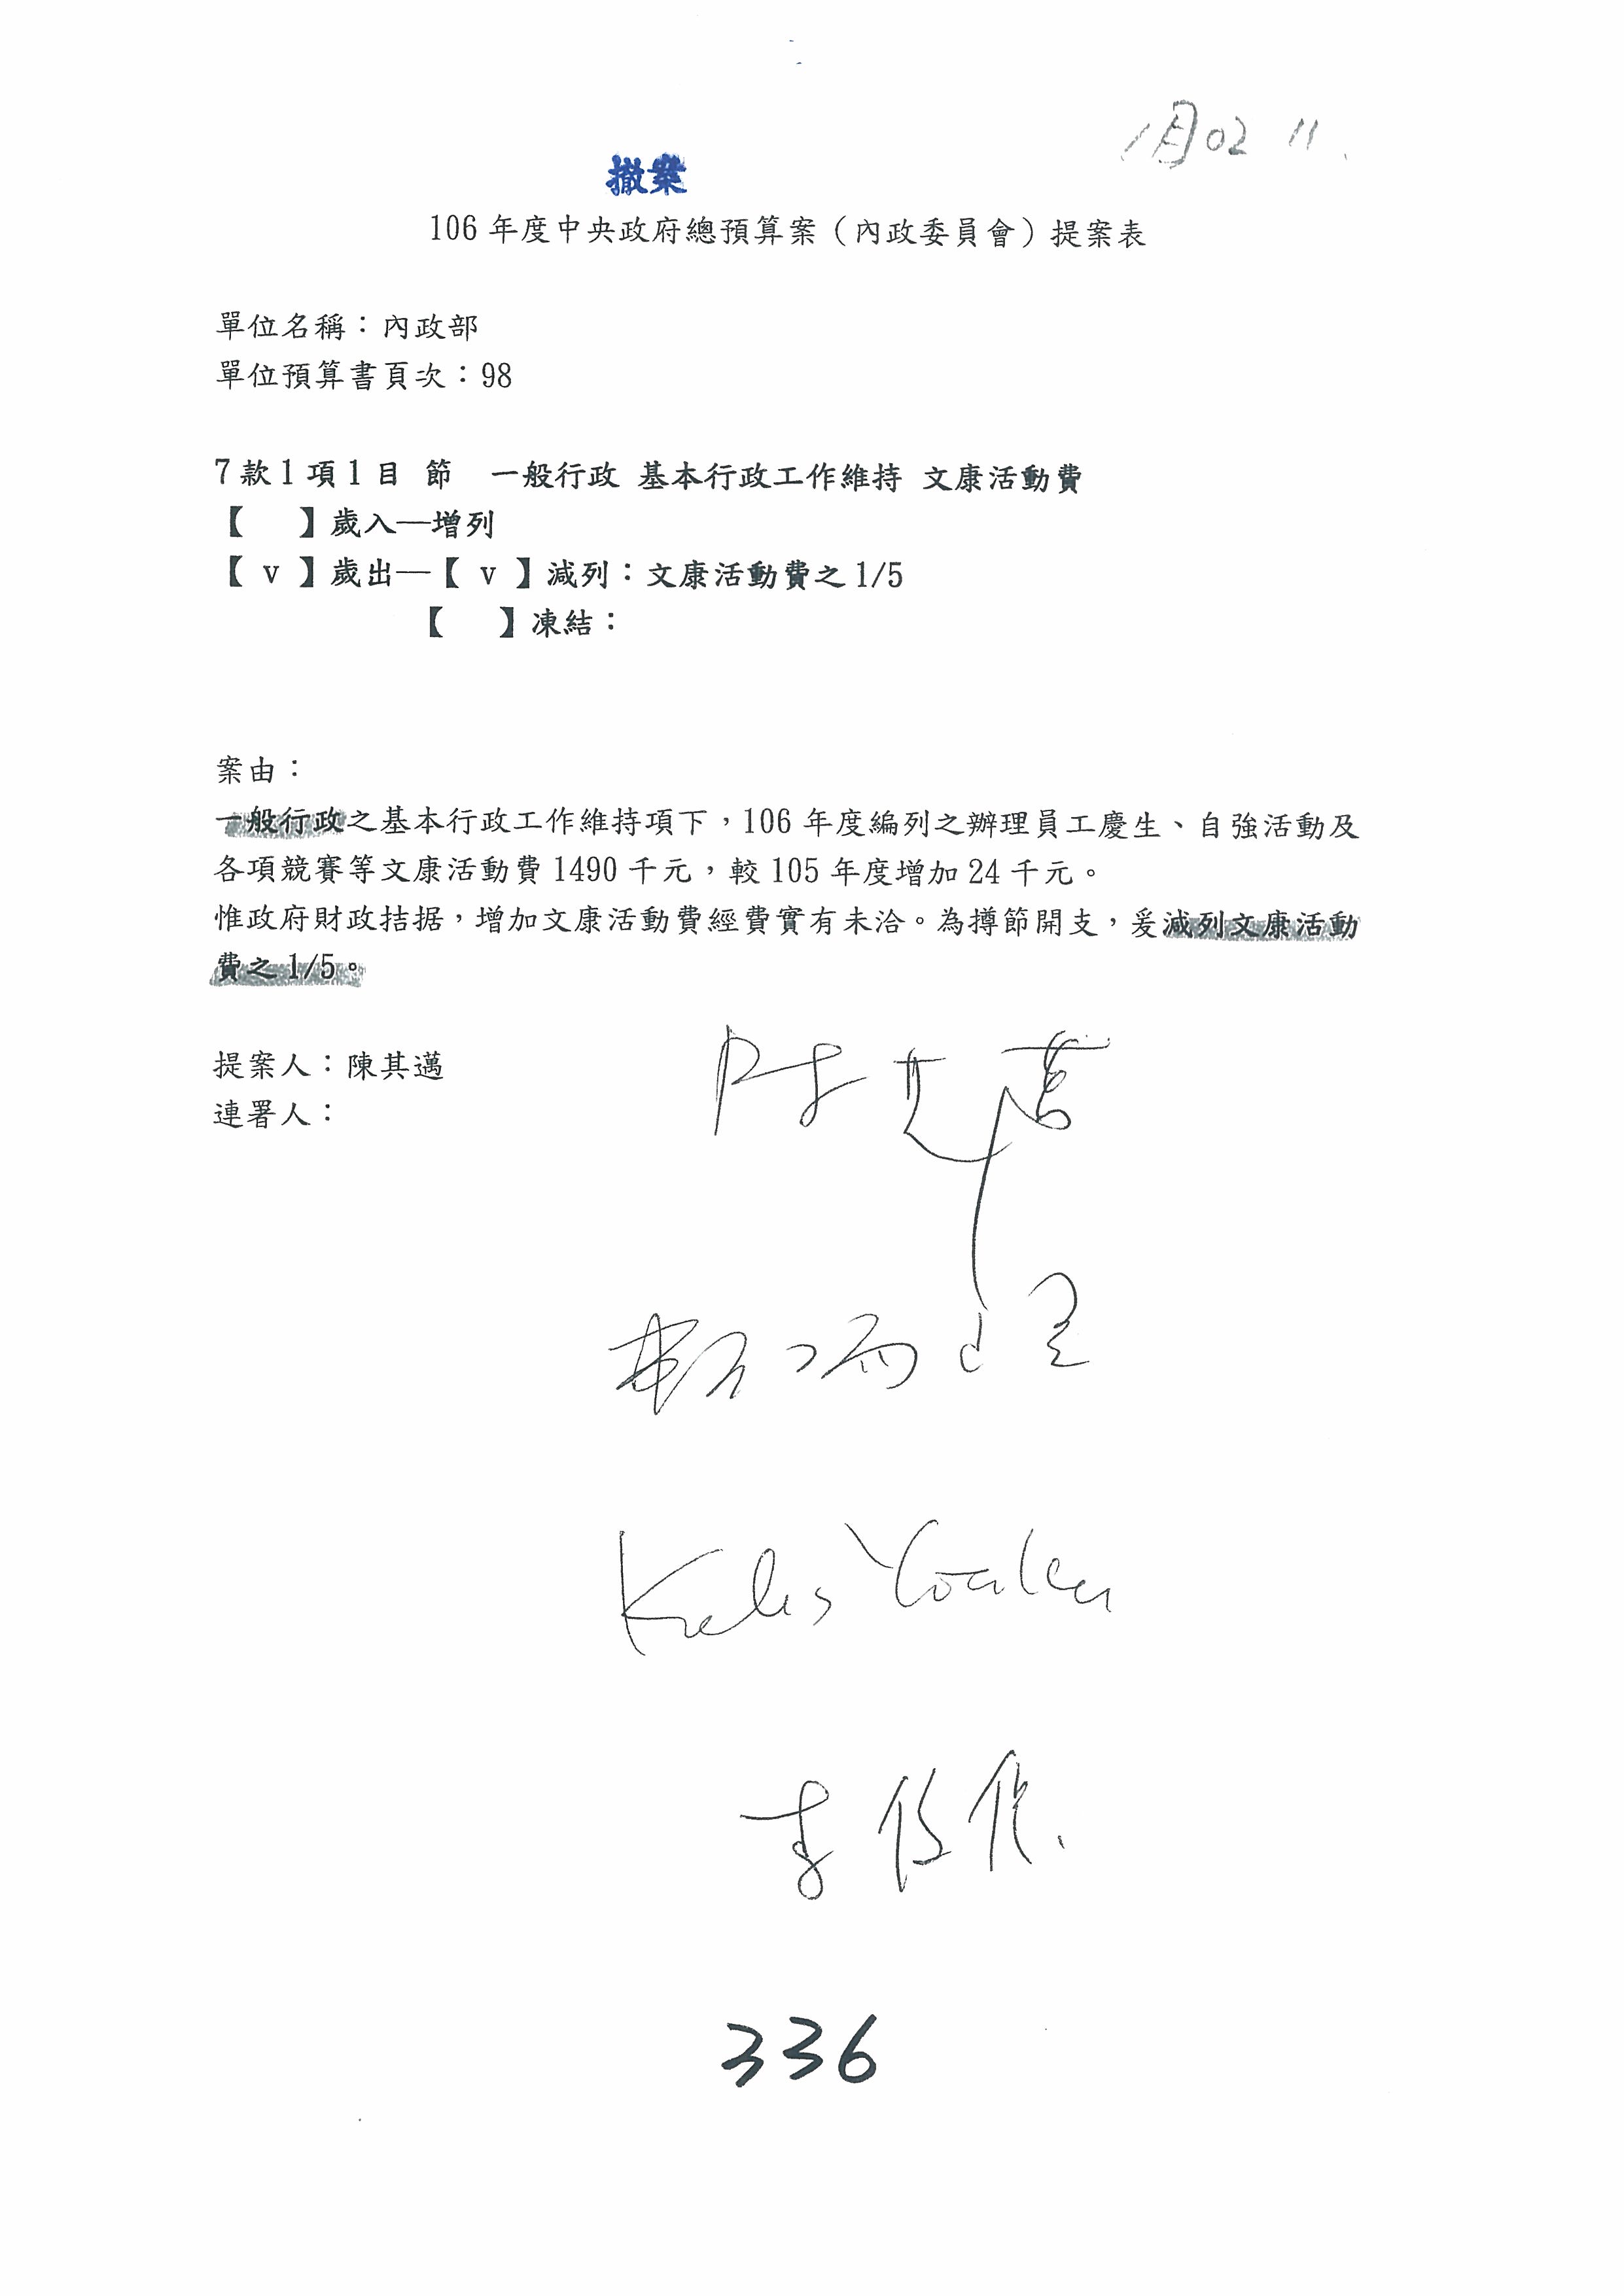 撤案
106 年度中央政府總預算案（內政委員會）提案表
單位名稱：內政部
單位預算書頁次：98
7 款 1 項 1 目 節 一般行政 基本行政工作維持 文康活動費
【 】歲入—增列
【 v 】歲出—【 v 】減列：文康活動費之 1/5
【 】凍結：
案由：
一般行政之基本行政工作維持項下，106 年度編列之辦理員工慶生、自強活動及
各項競賽等文康活動費 1490 千元，較 105 年度增加 24 千元。
惟政府財政拮据，增加文康活動費經費實有未洽。為撙節開支，爰減列文康活動
費之 1/5。
提案人：陳其邁
連署人：
陳其邁
Kolas Yotaka
李俊俋
336